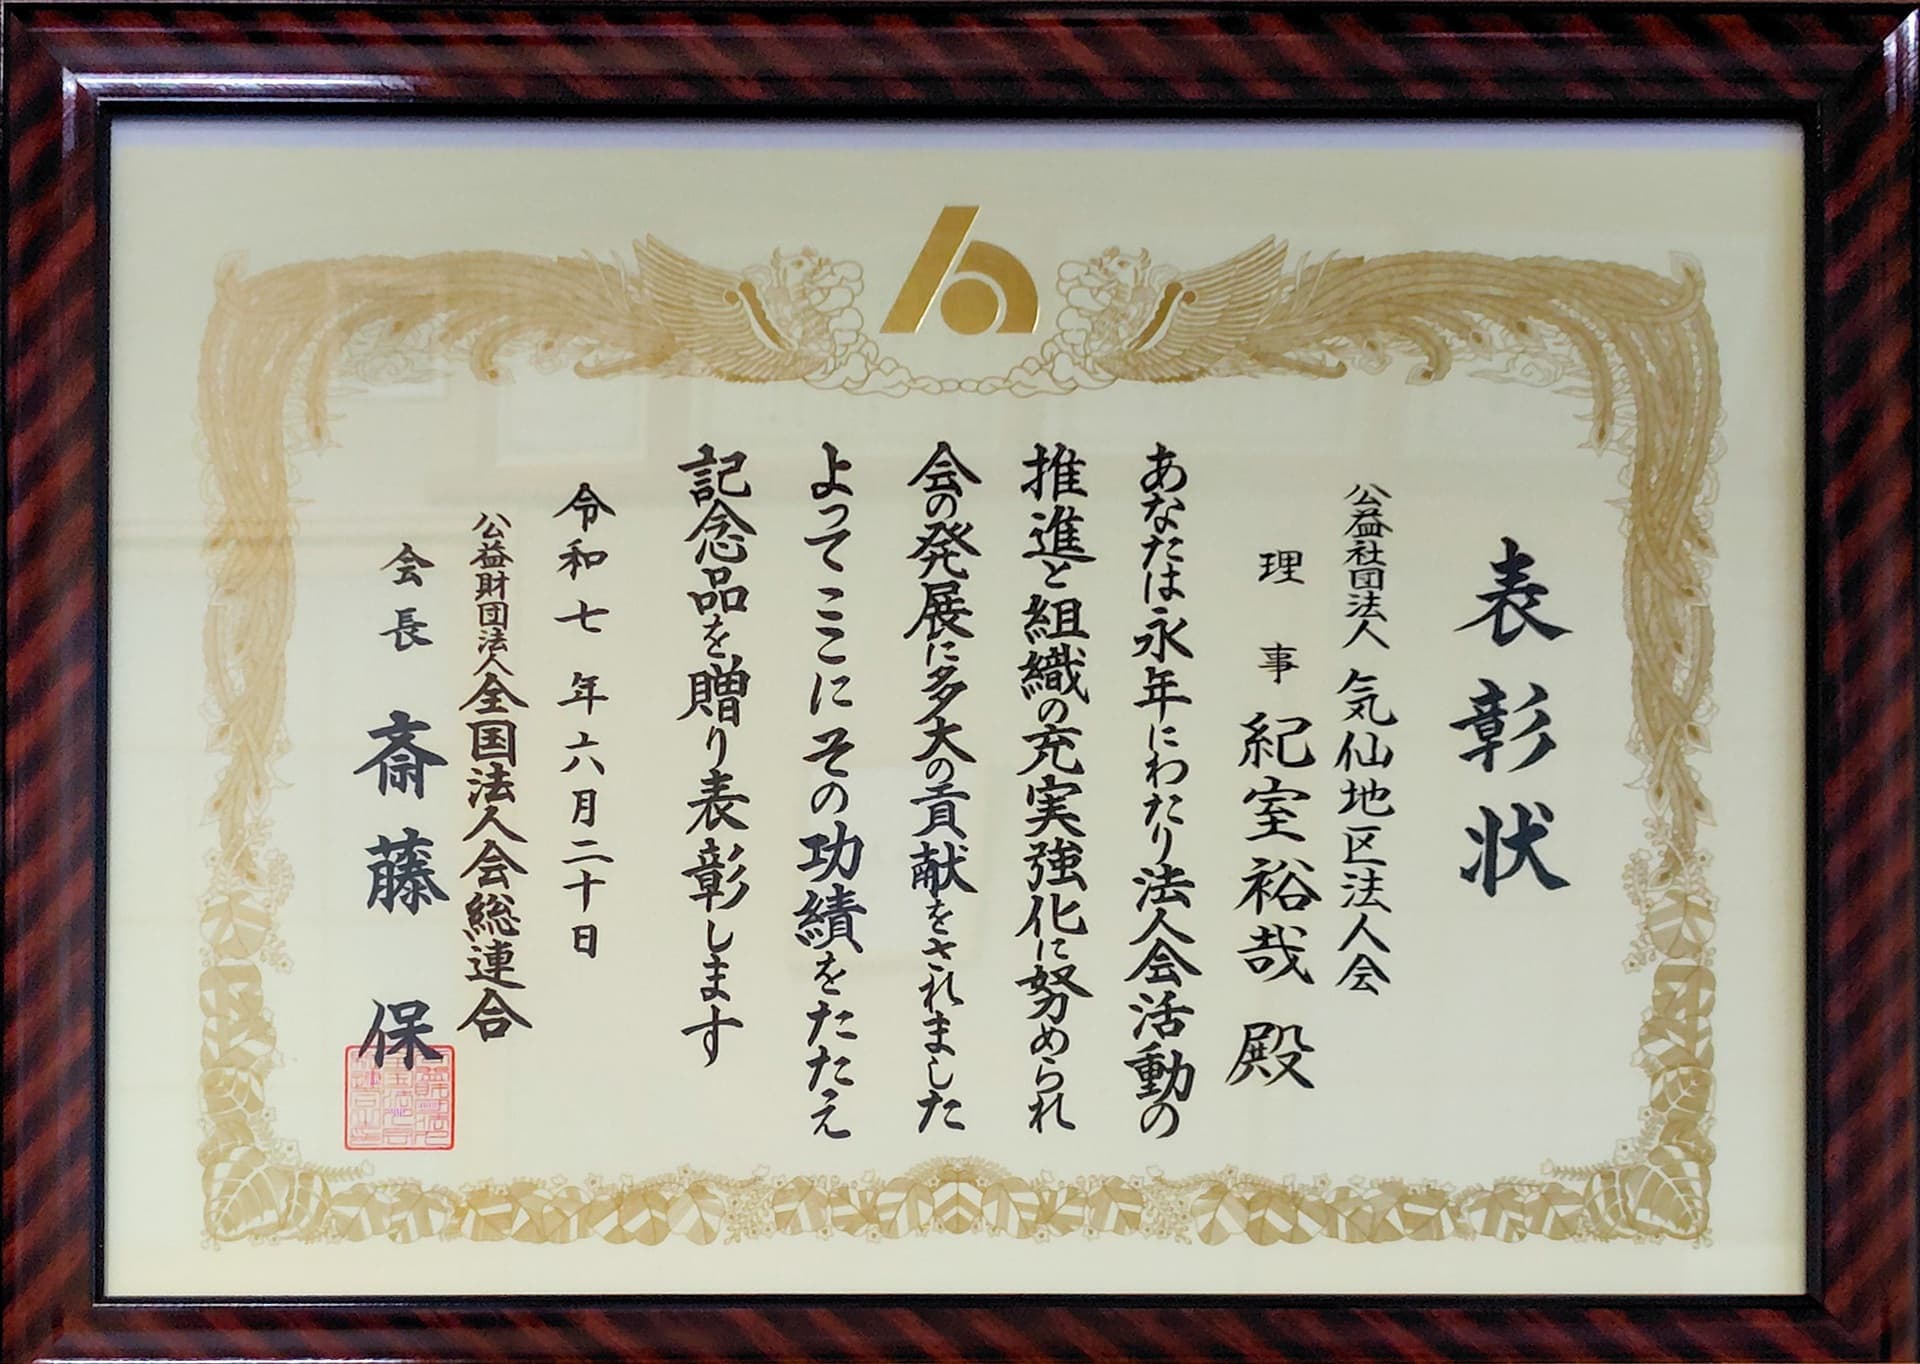 表彰状
公益社団法人 気仙地区法人会
理事 紀室裕哉 殿
あなたは永年にわたり法人会活動の
推進と組織の充実強化に努められ
会の発展に多大の貢献をされました
よってここにその功績をたたえ
記念品を贈り表彰します
令和七年六月二十日
公益財団法人全国法人会総連合
会長 斎藤 保